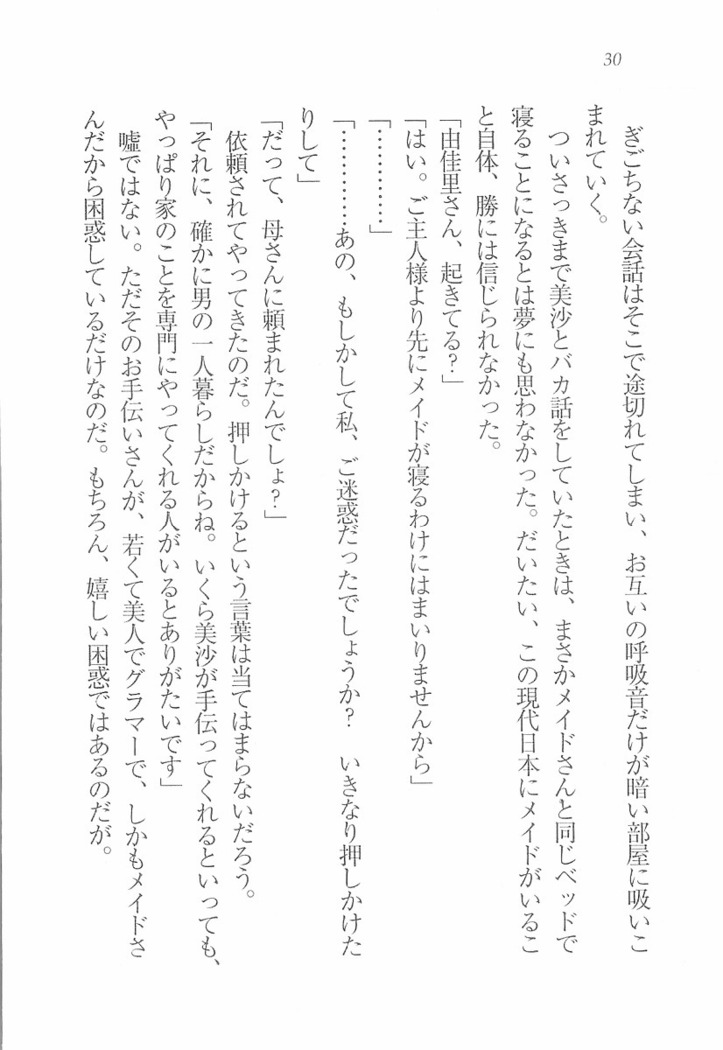 30
ぎごちない会話はそこで途切れてしまい、お互いの呼吸音だけが暗い部屋に吸いこ
まれていく。
ついさっきまで美沙とバカ話をしていたときは、まさかメイドさんと同じベッドで
寝ることになるとは夢にも思わなかった。だいたい、この現代日本にメイドがいるこ
と自体、勝には信じられなかった。
「由佳里さん、起きてる?」
「はい。ご主人様より先にメイドが寝るわけにはまいりませんから」
「…………」
「…………あの、もしかして私、ご迷惑だったでしょうか? いきなり押しかけた
りして」
「だって、母さんに頼まれたんでしょ?」
依頼されてやってきたのだ。押しかけるという言葉は当てはまらないだろう。
「それに、確かに男の一人暮らしだからね。いくら美沙が手伝ってくれるといっても、
やっぱり家のことを専門にやってくれる人がいるとありがたいです」
嘘ではない。ただそのお手伝いさんが、若くて美人でグラマーで、しかもメイドさ
んだから困惑しているだけなのだ。もちろん、嬉しい困惑ではあるのだが。